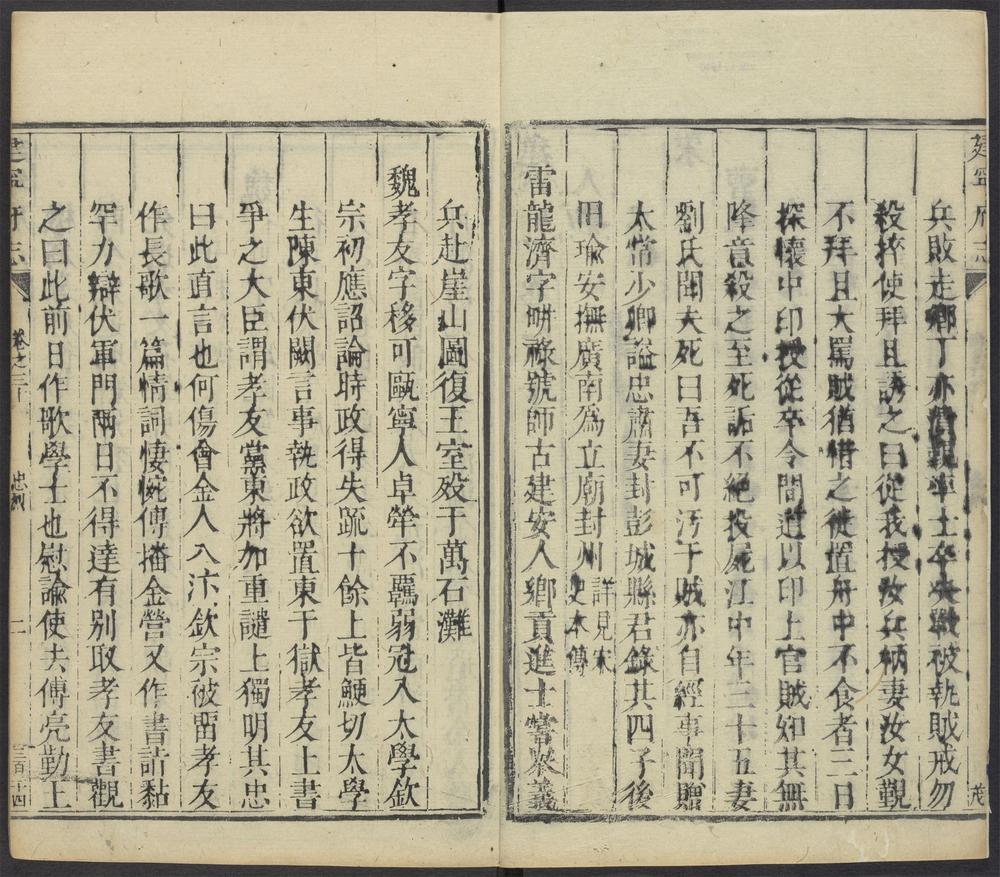 建寧府志
兵敗走鄉丁亦潰覲率士卒決戰被執賊戒勿
殺捽使拜且誘之曰從我授汝兵柄妻汝女覲
不拜且大罵賊猶惜之徙置舟中不食者三日
探懷中印授從卒令間道以印上官賊知其無
降意殺之至死詬不絕投屍江中年三十五妻
劉氏聞夫死曰吾不可汚于賊亦自經事聞贈
太常少卿謚忠肅妻封彭城縣君錄其四子後
田瑜安撫廣南為立廟封州詳見宋史本傳
雷龍濟字畊祿號師古建安人鄉貢進士嘗聚義
茂
兵赴崖山圖復王室歿于萬石灘
魏孝友字移可甌寧人卓犖不羈弱冠入太學欽
宗初應詔論時政得失䟽十餘上皆鯁切太學
生陳東伏闕言事執政欲置東于獄孝友上書
爭之大臣謂孝友黨東將加重譴上獨明其忠
曰此直言也何傷會金人入汴欽宗被畱孝友
作長歌一篇情詞悽惋傳播金營又作書詣黏
罕力辯伏軍門兩日不得達有别取孝友書觀
之曰此前日作歌學士也慰諭使去傅亮勤上
建寧府志
卷之三十
忠烈
二
三百十四